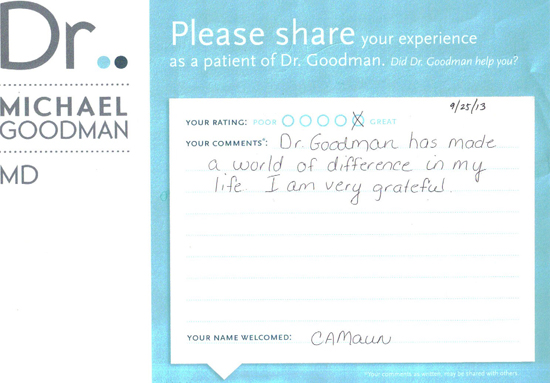 Dr..
MICHAEL
GOODMAN
MD
Please share your experience
as a patient of Dr. Goodman. Did Dr. Goodman help you?
9/25/13
YOUR RATING: POOR GREAT
YOUR COMMENTS*: Dr. Goodman has made
a world of difference in my
life I am very grateful.
YOUR NAME WELCOMED: CAMaun
*Your comments as written, may be shared with others.